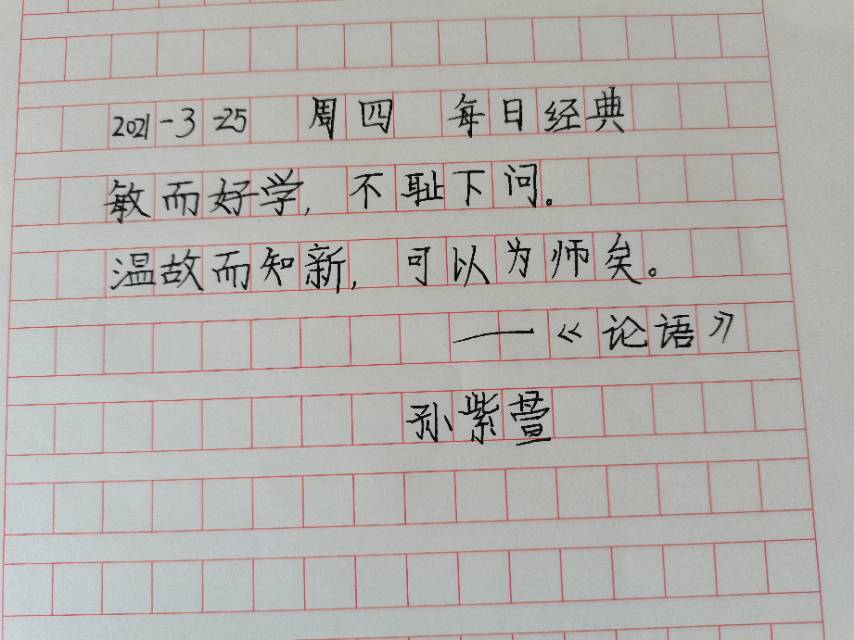 2021-3-25 周四 每日经典
敏而好学,不耻下问。
温故而知新,可以为师矣。
——《论语》
孙紫萱